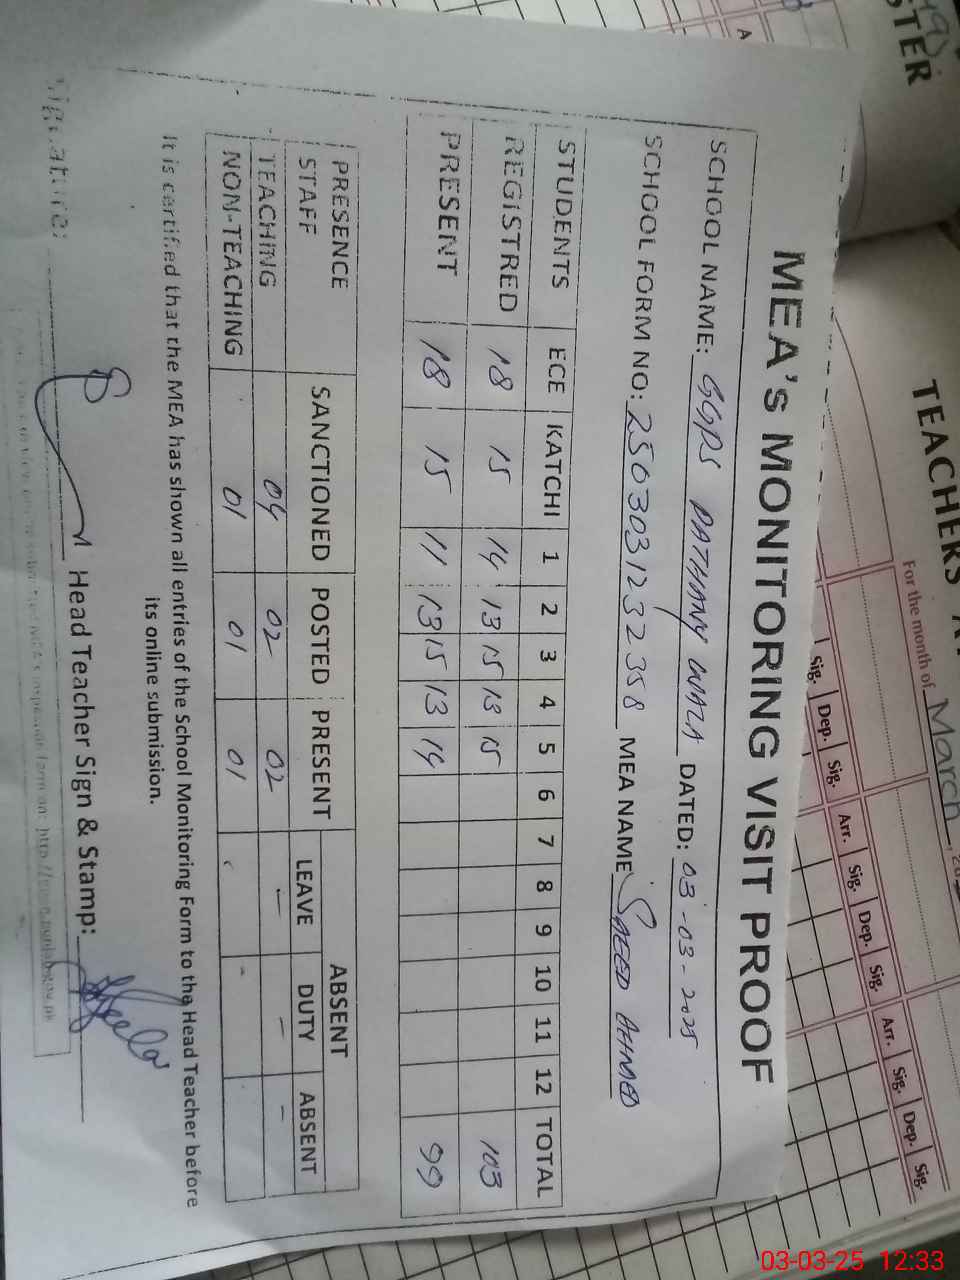 MEA's MONITORING VISIT PROOF
SCHOOL NAME: GGPS PATHANY WALA DATED: 03-03-2025
SCHOOL FORM NO: 250303123 2358 MEA NAME SAEED AHMED
STUDENTS ECE KATCHI 1 2 3 4 5 6 7 8 9 10 11 12 TOTAL
REGISTRED 18 15 14 13 15 13 15 103
PRESENT 18 15 11 13 15 13 14 99
PRESENCE STAFF SANCTIONED POSTED PRESENT ABSENT
LEAVE DUTY ABSENT
TEACHING 04 02 02 - - -
NON-TEACHING 01 01 01 - -
It is certified that the MEA has shown all entries of the School Monitoring Form to the Head Teacher before
its online submission.
Signature: Head Teacher Sign & Stamp:
STER
TEACHERS
For the month of March
Sig. Dep. Sig. Arr. Sig. Dep. Sig. Arr. Sig. Dep. Sig.
03-03-25 12:33